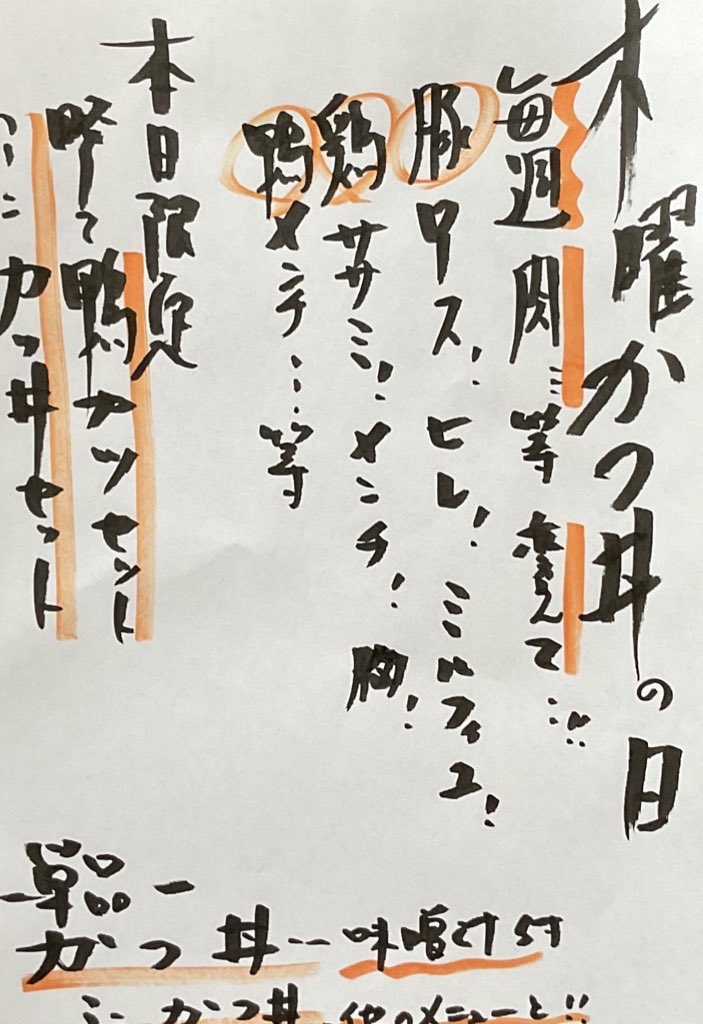 木曜かつ丼の日
毎週 肉…等 変えて…!!
豚 ロス! ヒレ! ミルフィユ!
鶏 ササミ! メンチ! 胸!
鴨 メンチ…等
本日限定
鴨カツセット
カツ丼セット
単品
かつ丼… 味噌汁付
ミニかつ丼 他のメニューと!!